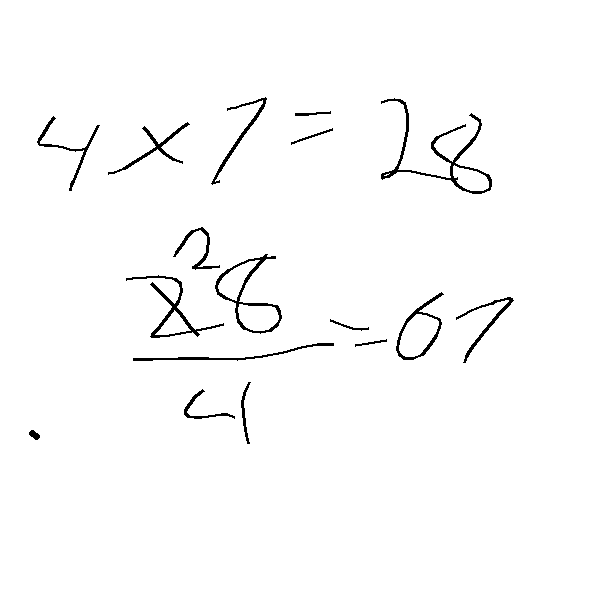 4 x 7 = 28
2
28
4
= 67